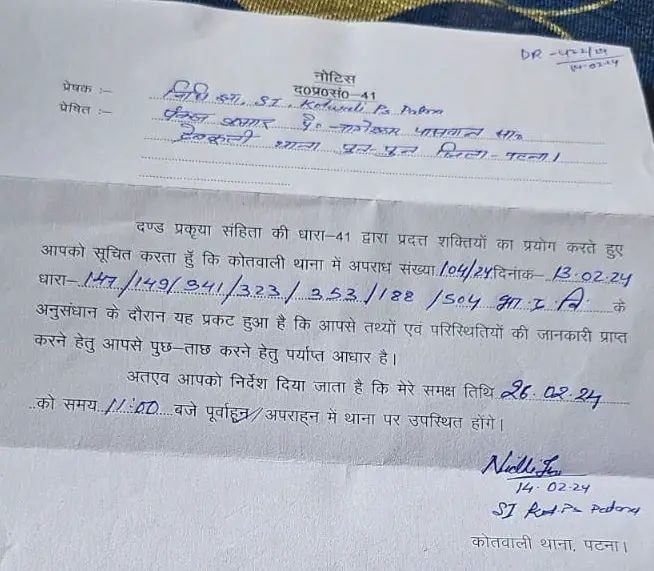 DR - 422/24
14.02.24
नोटिस
द०प्र०सं०-41
प्रेषक :- निधि झा, SI, Kotwali Ps Patna
प्रेषित :- कुमार पे०- पासवान सा०
थाना पुन-पुन जिला- पटना।
दण्ड प्रकृया संहिता की धारा-41 द्वारा प्रदत्त शक्तियों का प्रयोग करते हुए
आपको सूचित करता हुँ कि कोतवाली थाना में अपराध संख्या 104/24 दिनांक- 13.02.24
धारा- 147/149/341/323/353/188/504 भा द वि के
अनुसंधान के दौरान यह प्रकट हुआ है कि आपसे तथ्यों एवं परिस्थितियों की जानकारी प्राप्त
करने हेतु आपसे पुछ-ताछ करने हेतु पर्याप्त आधार है।
अतएव आपको निर्देश दिया जाता है कि मेरे समक्ष तिथि 26.02.24
को समय 11:00 बजे पूर्वाह्न/अपराहन में थाना पर उपस्थित होंगे।
Nidhi Jha
14.02.24
SI Kot Ps Patna
कोतवाली थाना, पटना।